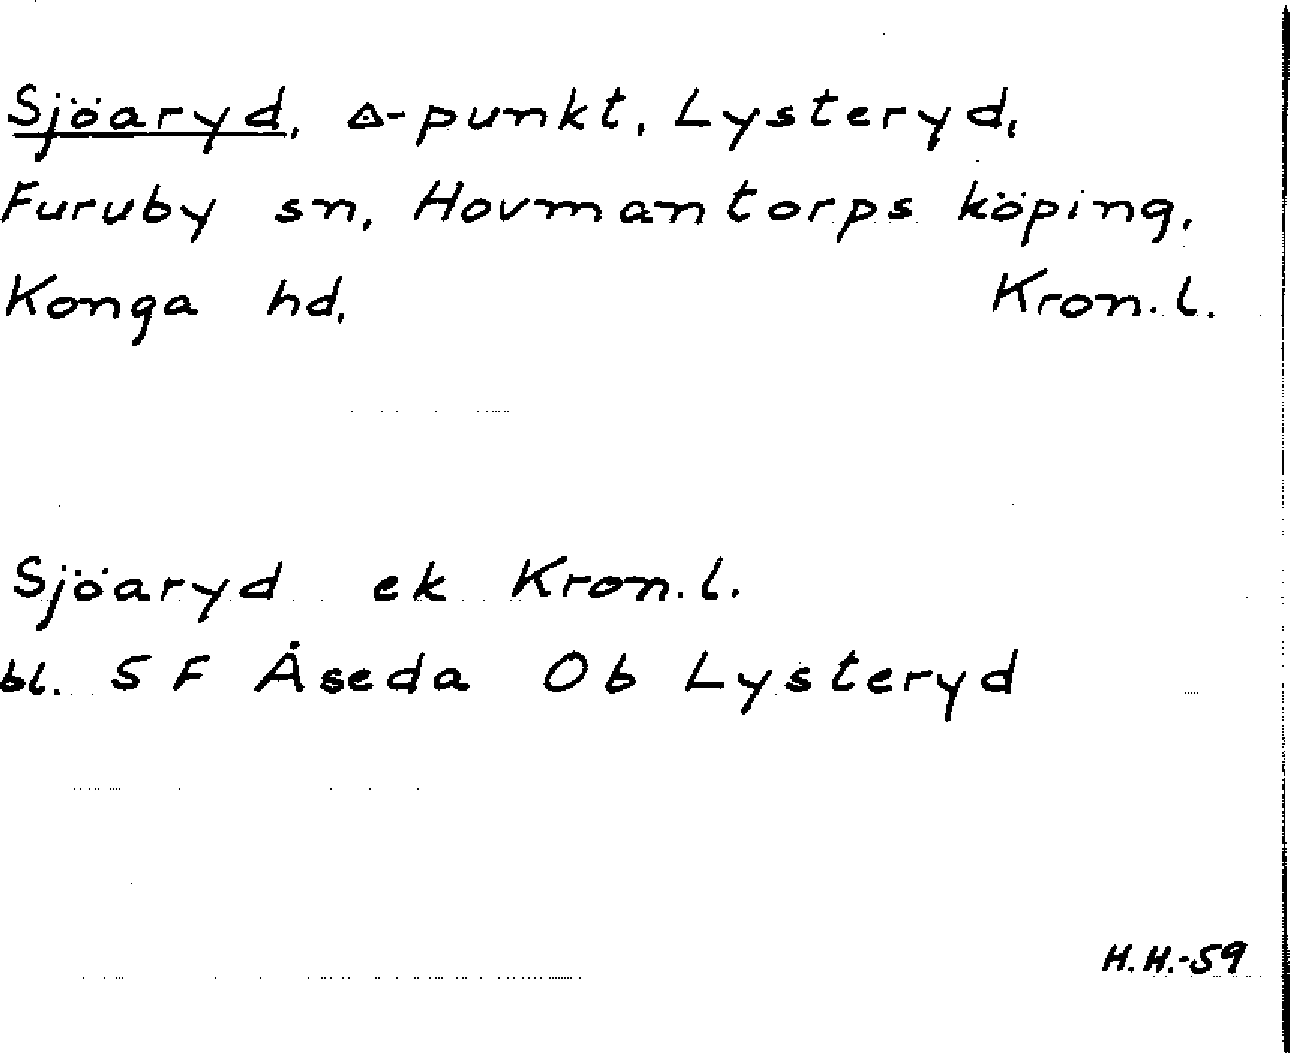 Sjöaryd, △-punkt, Lysteryd,
Furuby sn, Hovmantorps köping,
Konga hd, Kron. l.
Sjöaryd ek Kron. l.
bl. 5 F Åseda Ob Lysteryd
H. H.-59